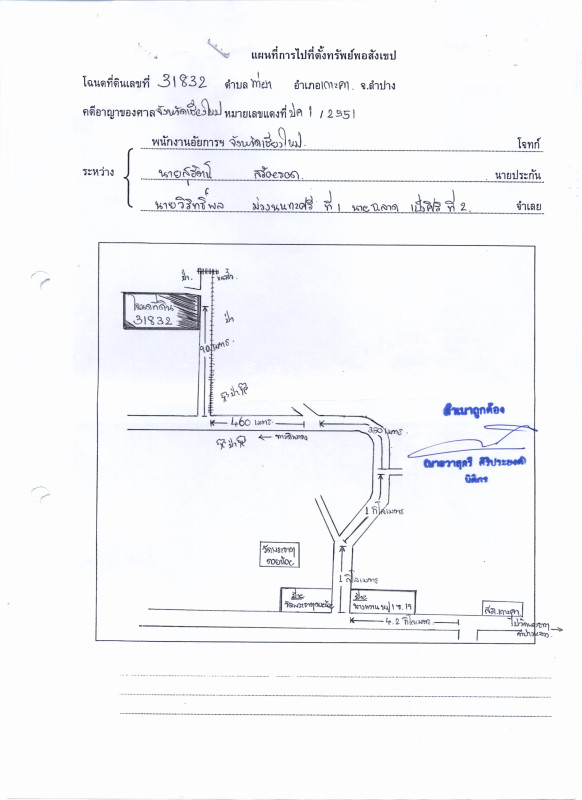 แผนที่การไปที่ตั้งทรัพย์พอสังเขป
โฉนดที่ดินเลขที่ 31832 ตำบล ท่าผา อำเภอเกาะคา จ.ลำปาง
คดีอาญาของศาลจังหวัดเชียงใหม่ หมายเลขแดงที่ ปค 1 / 2551
พนักงานอัยการฯ จังหวัดเชียงใหม่ โจทก์
ระหว่าง นายสุรัตน์ นายประกัน
นายวิริทธิ์พล ม่วงนนทศรี ที่ 1 นายฉลาด ที่ 2 จำเลย
ป่า
โฉนดที่ดิน
31832
ป่า
90 เมตร
ป่า
460 เมตร
350 เมตร
ป่า
ทางลูกรัง
สำเนาถูกต้อง
นิติกร
1 กิโลเมตร
วัดพระธาตุ
ดอยน้อย
1 กิโลเมตร
ป้าย
วัดพระธาตุดอยน้อย
ป้าย
4.2 กิโลเมตร
สภ.เกาะคา